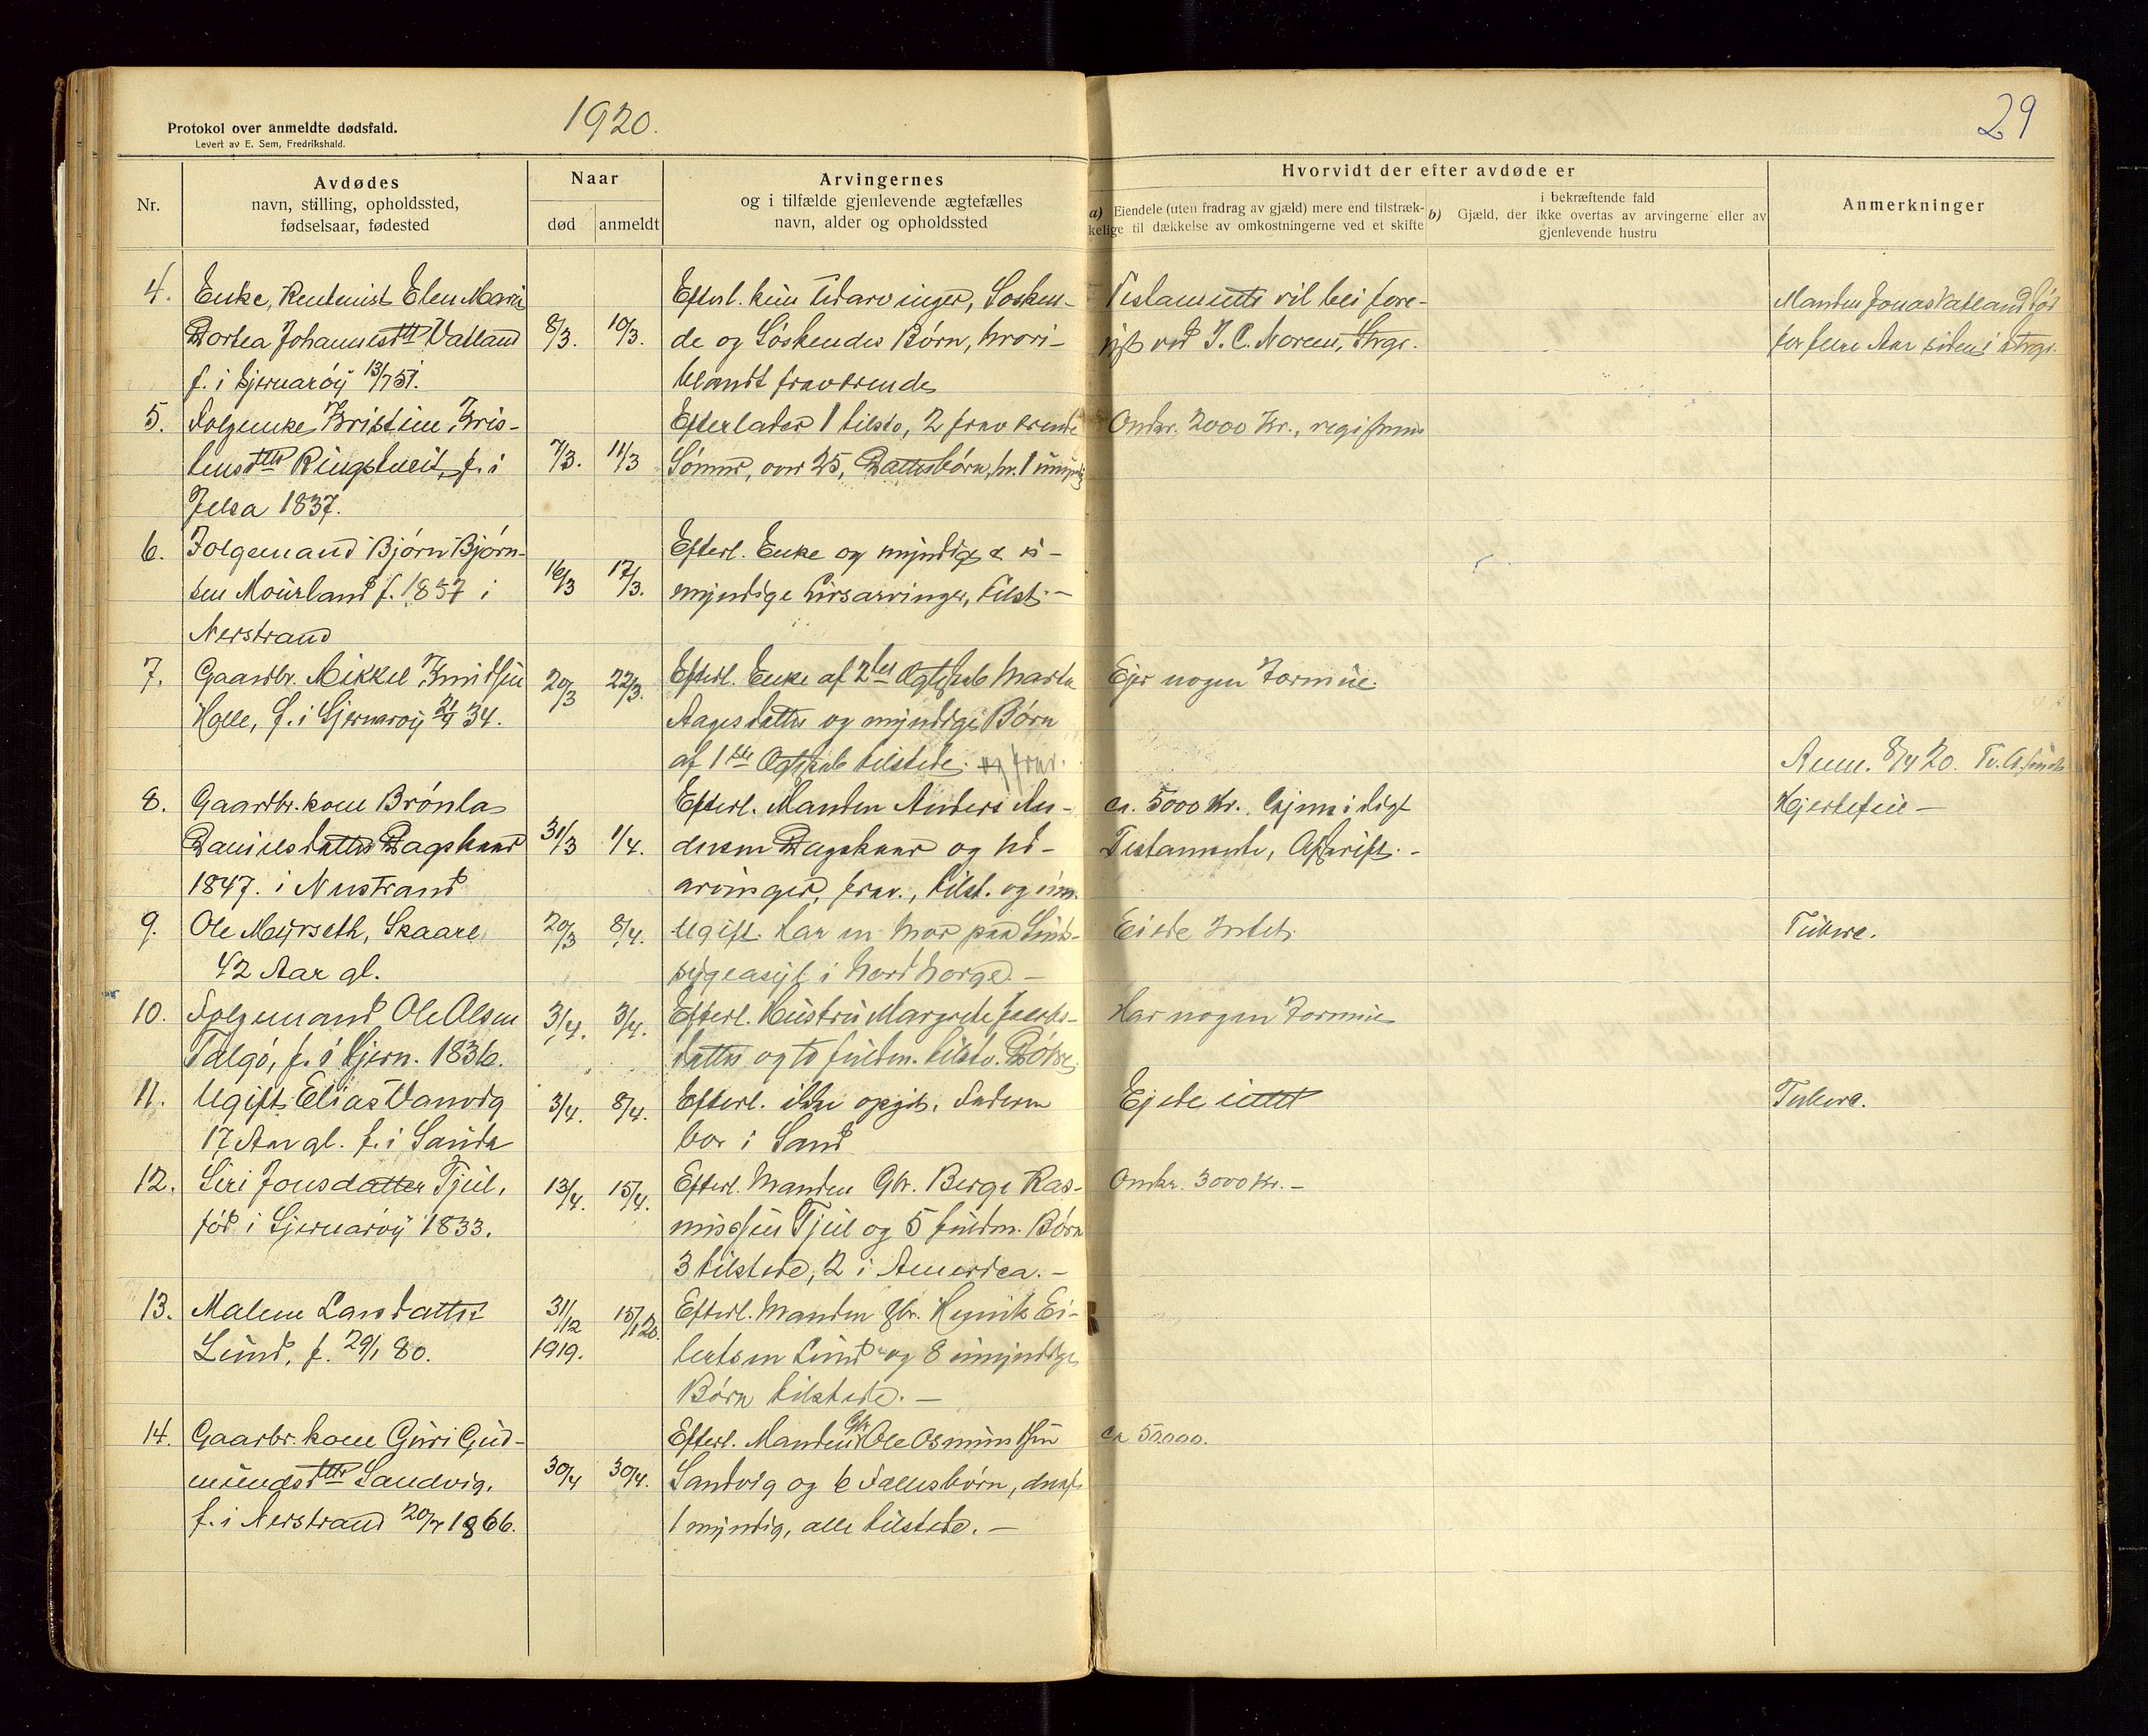 1920.
29
Protokol over anmeldte dødsfald.
Levert av E. Sem, Fredrikshald.
Nr.
Avdødes
navn, stilling, opholdssted,
fødselsaar, fødested
Naar
død
anmeldt
Arvingernes
og i tilfælde gjenlevende ægtefælles
navn, alder og opholdssted
Hvorvidt der efter avdøde er
a) Eiendele (uten fradrag av gjæld) mere end tilstræk-
kelige til dækkelse av omkostningerne ved et skifte
i bekræftende fald
b) Gjæld, der ikke overtas av arvingerne eller av
gjenlevende hustru
Anmerkninger
4. Enke, Rentenist Elen Marie
Dortea Johannesdtt Vatland
f. i Sjernarøy 13/7 51.
8/3. 10/3.
Efterl. kun Udarvinger, Sosken-
de og Søskendes Børn, hvori-
blandt fraværende
Testamente vil bli fore-
vist ved J. C. Noreu, Stvgr.
Manden Jonas Vatland død
for flere Aar siden i Stvgr.
5. Folgeenke Kristine Kris-
tensdtter Ringstveit, f. i
Jelsa 1837.
7/3. 11/3
Efterlader 1 tilstd, 2 fraværende
Sønner, over 25, Dattersbørn, hv. 1 umyndig
Omkr. 2000 Kr.,
6. Folgemand Bjørn Bjørn-
sen Mourland f. 1837 i
Nerstrand
16/3 17/3.
Efterl. Enke og myndige & u-
myndige Livsarvinger, tilst. -
7. Gaardbr. Mikkel Knudsen
Helle, f. i Sjernarøy 21/9 34.
20/3 22/3.
Efterl. Enke af 2det Ægteskab Marta
Aagesdatter og myndige Børn
af 1ste Ægteskab tilstede. og frav.
Ejer nogen Formue.
8. Gaardbr. kone Brønla
Danielsdatter Dagsland
1847. i Nerstrand
31/3 1/4.
Efterl. Manden Anders An-
dersen Dagsland og Ud-
arvinger, frav., tilst. og um.
ca. 5000 Kr. Gjensidigt
Testamente, Afskrift. -
Anm. 8/4 20.
Hjertefeil -
9. Ole Myrseth, Skaare
42 Aar gl.
20/3 8/4.
Ugift. Har en Mor paa Sind-
sygeasyl i Nord Norge. -
Eiede Intet.
Tubere.
10. Folgemand Ole Olsen
Talgø, f. i Sjern. 1836.
3/4. 3/4.
Efterl. Hustru Margrete Jacobs-
datter og to fuldm. tilstv. Døtre.
Har nogen Formue
11. Ugift Elias Vanvig
17 Aar gl. f. i Sauda
3/4. 8/4.
Efterl. ikke opgit. Faderen
bor i Sand
Ejede intet
Tubere.
12. Siri Jonsdatter Tjul,
fød i Sjernarøy 1833.
13/4. 15/4.
Efterl. Manden Gbr. Berge Ras-
mussen Tjul og 5 fuldm. Børn
3 tilstede, 2 i Amerika. -
Omkr. 3000 Kr. -
13. Malene Larsdatter
Lund, f. 29/1 80.
31/12 15/1 20.
1919.
Efterl. Manden Gbr. Henrik Ei-
bertsen Lund og 8 umyndige
Børn tilstede. -
14. Gaarbr. kone Guri Gud-
mundsdtter Sandvig,
f. i Nerstrand 1866.
30/4 30/4.
Efterl. Manden Gbr. Ole Osmundsen
Sandvig og 6 Fællesbørn, deraf
1 myndig, alle tilstede. -
ca 50000.